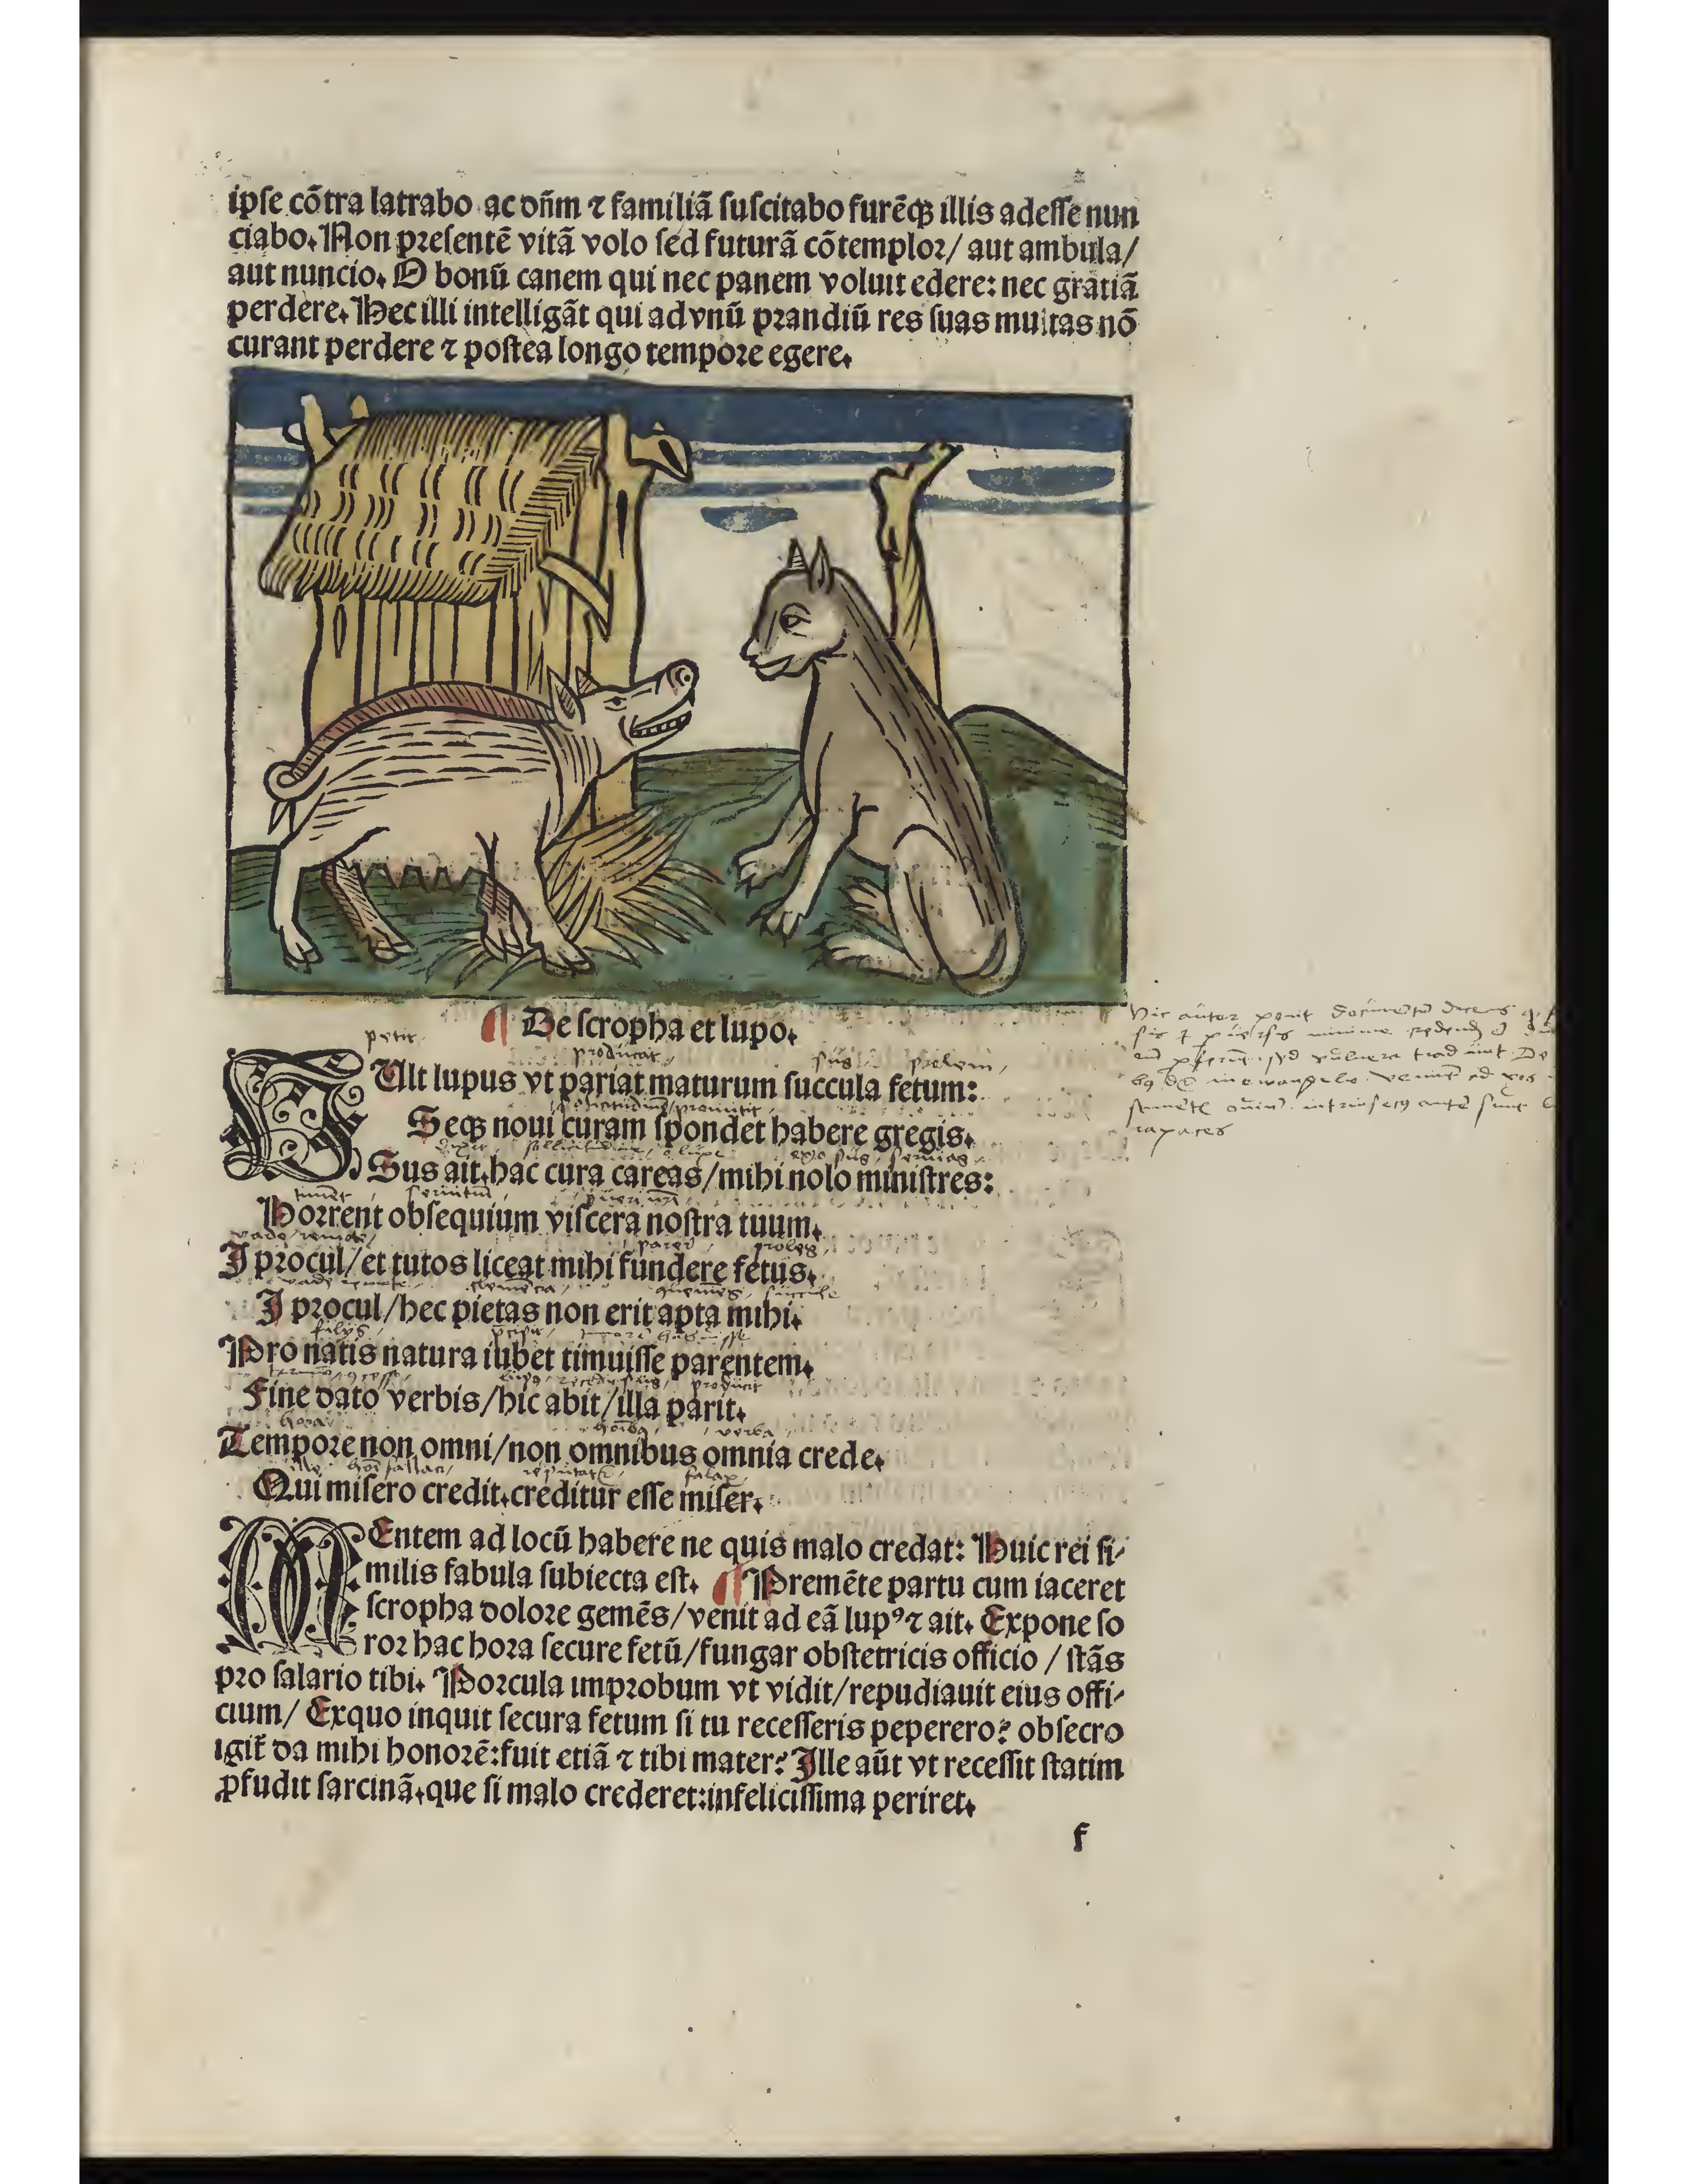 ipſe cōtra latrabo ac dñm ⁊ familiā ſuſcitabo furēqꝫ illis adeſſe nun
ciabo. Non preſentē vitā volo ſed futurā cōtemplor/ aut ambula/
aut nuncio. O bonū canem qui nec panem voluit edere: nec gratiā
perdere. Hec illi intelligāt qui ad vnū prandiū res ſuas multas nō
curant perdere ⁊ poſtea longo tempore egere.
De ſcropha et lupo.
petit
producat
sus prolem
VUlt lupus vt pariat maturum ſuccula fetum:
Seqꝫ noui curam ſpondet habere gregis.
Sus ait. hac cura careas/mihi nolo miniſtres:
Horrent obſequium viſcera noſtra tuum.
I procul/et tutos liceat mihi fundere fetus.
I procul/hec pietas non erit apta mihi.
Pro natis natura iubet timuiſſe parentem.
Fine dato verbis/hic abit/illa parit.
verba
Tempore non omni/non omnibus omnia crede.
Qui miſero credit.creditur eſſe miſer.
Hic autor ponit documentum dicens
rapaces
MEntem ad locū habere ne quis malo credat: Huic rei ſi⸗
milis fabula ſubiecta eſt. Premēte partu cum iaceret
ſcropha dolore gemēs/venit ad eā lupꝰ ⁊ ait. Expone ſo
ror hac hora ſecure fetū/fungar obſtetricis officio / ſtās
pro ſalario tibi. Porcula improbum vt vidit/repudiauit eius offi⸗
cium/ Exquo inquit ſecura fetum ſi tu receſſeris peperero? obſecro
igit̄ da mihi honorē:fuit etiā ⁊ tibi mater? Ille aūt vt receſſit ſtatim
ꝓfudit ſarcinā.que ſi malo crederet:infeliciſſima periret.
f